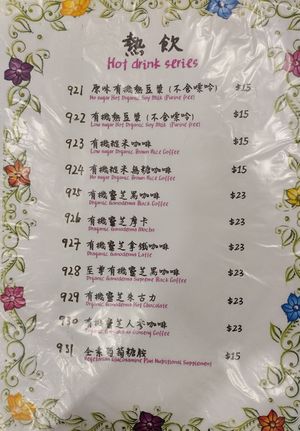 熱飲
Hot drink series
921 原味有機熱豆漿(不含嘌呤) $15
No sugar Hot Organic Soy Milk (Purine free)
922 有機熱豆漿(不含嘌呤) $15
Low sugar Organic Soy Milk (Purine free)
923 有機糙米咖啡 $15
Low sugar Organic Brown Rice Coffee
924 有機糙米無糖咖啡 $15
No sugar Organic Brown Rice Coffee
925 有機靈芝黑咖啡 $23
Organic Ganoderma Black Coffee
926 有機靈芝摩卡 $23
Organic Ganoderma Mocha
927 有機靈芝拿鐵咖啡 $23
Organic Ganoderma Latte
928 至尊有機靈芝黑咖啡 $23
Organic Ganoderma Supreme Black Coffee
929 有機靈芝朱古力 $23
Organic Ganoderma Hot Chocolate
930 有機靈芝人參咖啡 $23
Ginseng Coffee
931 全素葡萄糖胺 $15
Vegetarian Glucosamine Plus Nutritional Supplement